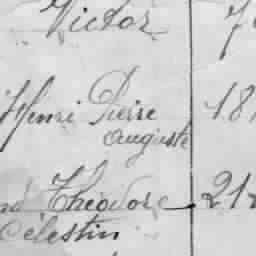 Victor 7
Henri Pierre 18
Auguste
Théodore 21
Célestin